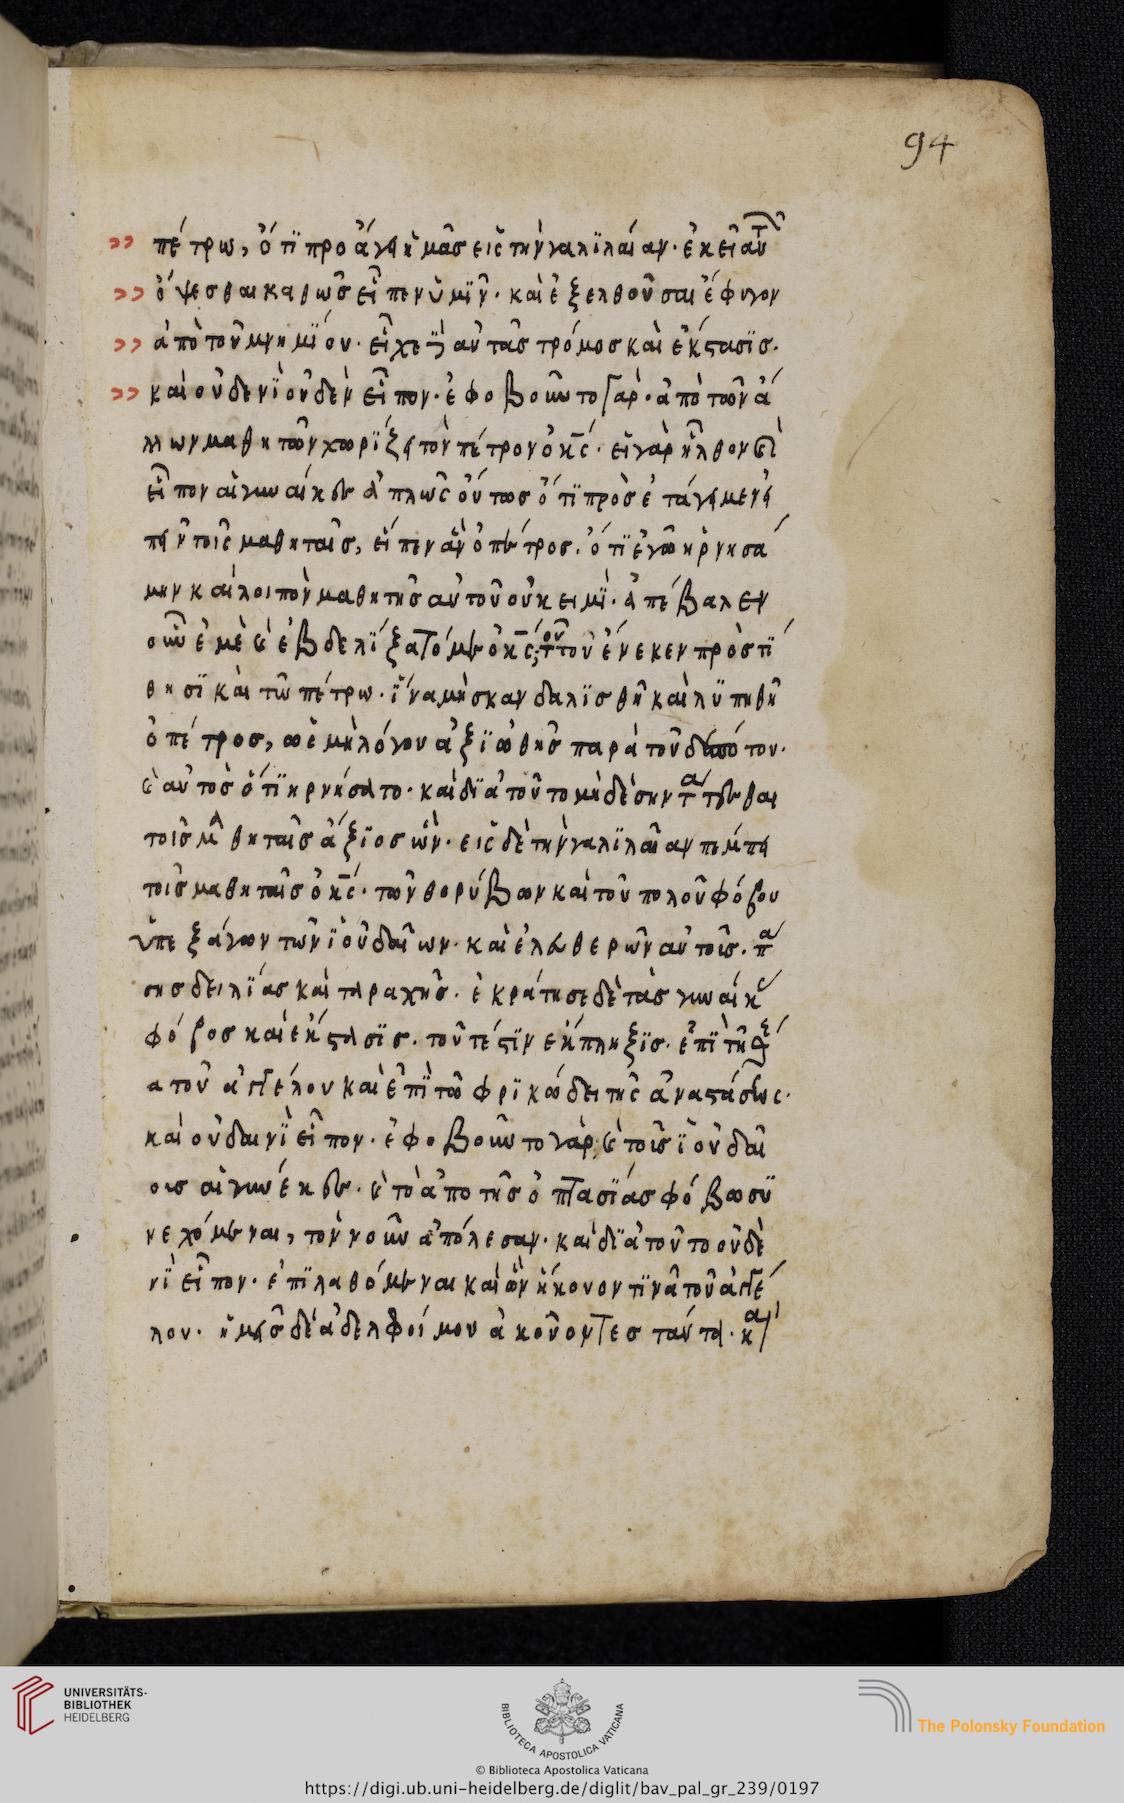 94
πέτρω, ὅτϊ προάγει ἡμᾶς εἰς τὴν γαλϊλαίαν· ἐκεῖ αὐτ
ὄψεσθαι καθὼς εἶπεν ὑμῖν· καὶ ἐξελθοῦσαι ἔφυγον
ἀπὸ τοῦ μνημϊου· εἶχε αὐτὰς τρόμος καὶ ἔκστασϊς·
καὶ οὐδενὶ οὐδὲν εἶπον· ἐφοβοῦντο γὰρ· ἀπὸ τῶν ἀ
λλων μαθητῶν χωρϊζει τὸν πέτρον ὁ κ̅ς· εἰ γὰρ ἦλθον
εἶπον αἱ γυναῖκες ἁπλῶς οὕτως ὅτϊ προσετάγημεν
πεῖν τοῖς μαθηταῖς, εἶπεν ἂν ὁ πέτρος· ὅτϊ ἐγὼ ἠρνησά
μην καὶ λοιπὸν μαθητὴς αὐτοῦ οὐκ εἰμϊ· ἀπέβαλεν
οὖν ἐμὲ καὶ ἐβδελϊξατο με ὁ κ̅ς, τούτου ἕνεκεν προστϊ
θησϊ καὶ τῶ πέτρω· ἵνα μὴ σκανδαλϊσθῆ καὶ λϋπηθῆ
ὁ πέτρος, ὡς μὴ λόγον ἀξϊωθης παρὰ τοῦ
ὡς αὐτὸς ὅτϊ ἠρνήσατο· καὶ δϊα τοῦτο μηδὲ συντάττεσθαι
τοῖς μαθηταῖς ἄξϊος ὢν· εἰς δὲ τὴν γαλϊλαῖαν πέμπει
τοῖς μαθηταῖς ὁ κ̅ς· τῶν θορύβων καὶ τοῦ πολοῦ φόβου
ὑπεξάγων τῶν ϊουδαῖων· καὶ ἐλευθερῶν αὐτοῖς· πά
σης δειλϊας καὶ ταραχῆς· ἐκράτησε δὲ τὰς γυναῖκ
φόβος καὶ ἔκστασϊς· τουτέστϊν ἔκπληξϊς· ἐπϊ τῆ
α τοῦ ἀγγέλου καὶ ἐπϊ τῶ φρϊκώδει τῆς ἀναστάσεως·
καὶ οὐδαινϊ εἶπον· ἐφοβοῦντο γὰρ καὶ τοῖς ϊουδαῖ
οις αἱ γυναίκες· καὶ τὸ ἀπο τῆς ὀπτασϊας φόβω σϋ
νεχόμεναι, τὸν νοῦν ἀπόλεσαν· καὶ δϊα τοῦτο οὐδὲ
νϊ εἶπον· ἐπϊλαθόμεναι καὶ ὧν ἤκουον τϊνα τοῦ ἀγγέ
λου· ἡμεῖς δὲ ἀδελφοί μου ἀκούοντες ταύτα· κα
UNIVERSITÄTS-
BIBLIOTHEK
HEIDELBERG
BIBLIOTECA APOSTOLICA VATICANA
The Polonsky Foundation
© Biblioteca Apostolica Vaticana
https://digi.ub.uni-heidelberg.de/diglit/bav_pal_gr_239/0197